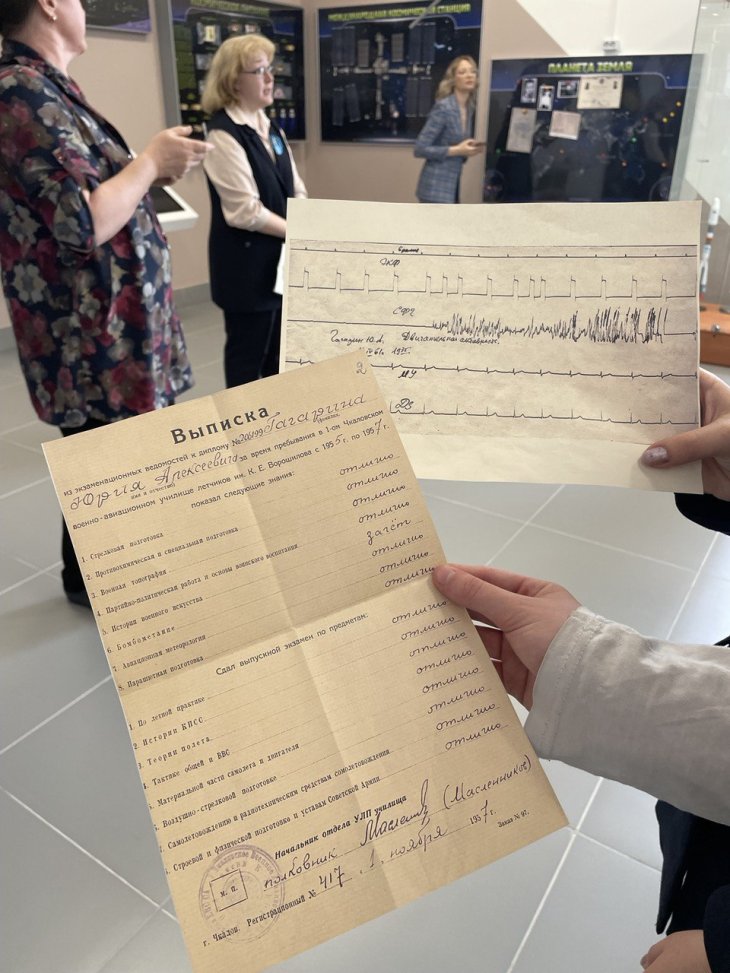 КОСМИЧЕСКОЕ ПИТАНИЕ
МЕЖДУНАРОДНАЯ КОСМИЧЕСКАЯ СТАНЦИЯ
ПЛАНЕТА ЗЕМЛЯ
Время
СКФ
СФЧ
Гагарин Ю.А. Двигательная активность.
МУ
2
Выписка
из экзаменационных ведомостей к диплому № Гагарина
Юрия Алексеевича за время пребывания в 1-ом Чкаловском
(имя и отчество)
военно-авиационном училище летчиков им. К. Е. Ворошилова с 1955 г. по 1957 г.
показал следующие знания:
1. Стрелковая подготовка отлично
2. Противохимическая и специальная подготовка отлично
3. Военная топография отлично
4. Партийно-политическая работа и основы воинского воспитания отлично
5. История военного искусства зачёт
6. Бомбометание отлично
7. Авиационная метеорология отлично
8. Парашютная подготовка отлично
Сдал выпускной экзамен по предметам:
1. По летной практике отлично
2. Истории КПСС отлично
3. Теории полета отлично
4. Тактике общей и ВВС отлично
5. Материальной части самолета и двигателя отлично
6. Воздушно-стрелковой подготовке отлично
7. Самолетовождению и радиотехническим средствам самолетовождения отлично
8. Строевой и физической подготовке и уставам Советской Армии отлично
Начальник отдела УЛП училища
полковник (Масленников)
м. п.
г. Чкалов. Регистрационный № 417 . 1. ноября 1957 г. Заказ № 97.